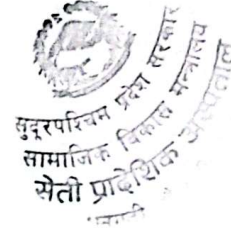 सुदूरपश्चिम प्रदेश सरकार
सामाजिक विकास मन्त्रालय
सेती प्रादेशिक अस्पताल